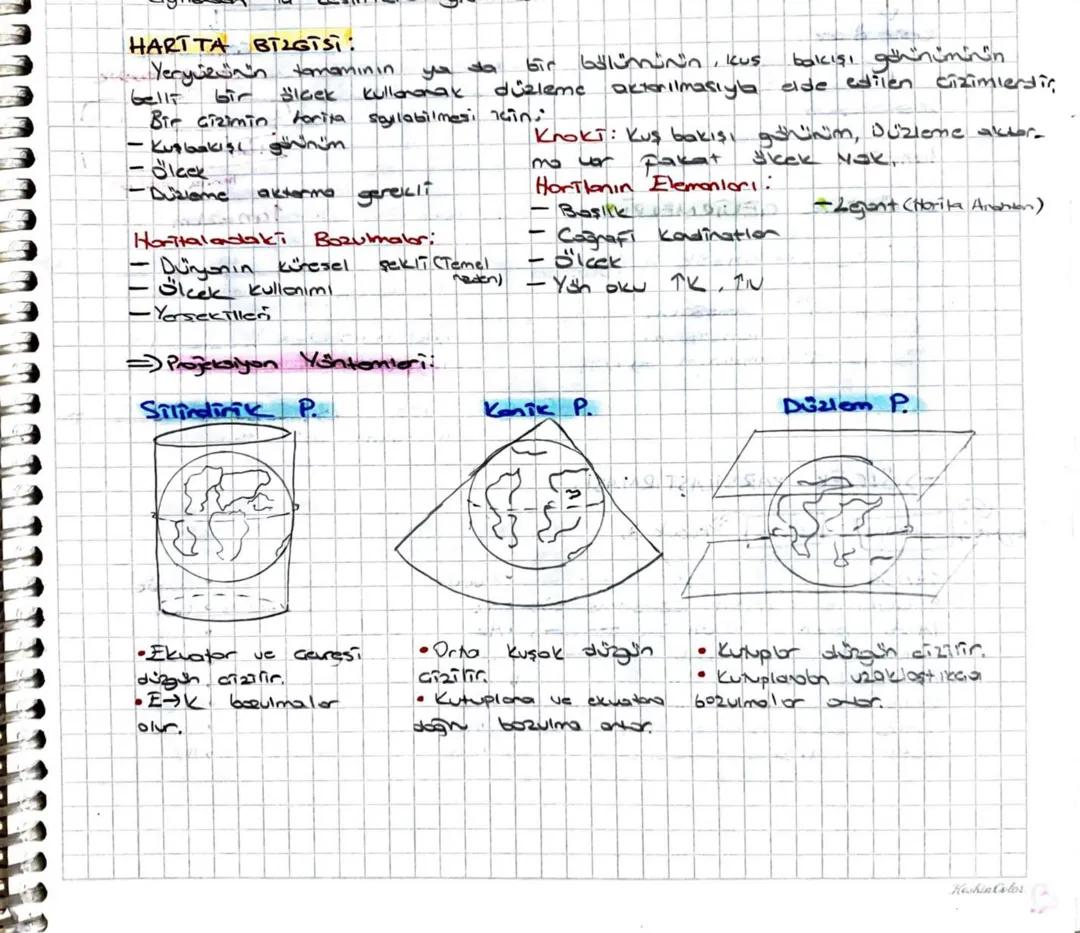 HARİTA BİLGİSİ:
Yeryüzünün tamamının ya da bir bölümünün, kuş bakışı görünümünün
belli bir ölçek kullanarak düzleme aktarılmasıyla elde edilen çizimlerdir.
Bir çizimin harita sayılabilmesi için;
- Kuşbakışı görünüm
- Ölçek
- Düzleme aktarma gerekli
Kroki: Kuş bakışı görünüm, Düzleme aktar-
ma var fakat ölçek yok.
Haritanın Elemanları:
- Başlık
- Coğrafi Koordinatlar
- Ölçek
- Yön oku ↑K, ↑N
- Lejant (Harita Anahtarı)
Haritalardaki Bozulmalar:
- Dünyanın küresel şekli (Temel
neden)
- Ölçek kullanımı
- Yerşekilleri
⇒ Projeksiyon Yöntemleri:
Silindirik P.
Konik P.
Düzlem P.
• Ekvator ve çevresi
düzgün çizilir.
• E→K bozulmalar
olur.
• Orta Kuşak düzgün
çizilir.
• Kutuplara ve ekvatora
doğru bozulma artar.
• Kutuplar düzgün çizilir.
• Kutuplardan uzaklaştıkça
bozulmalar artar.
KeskinColor